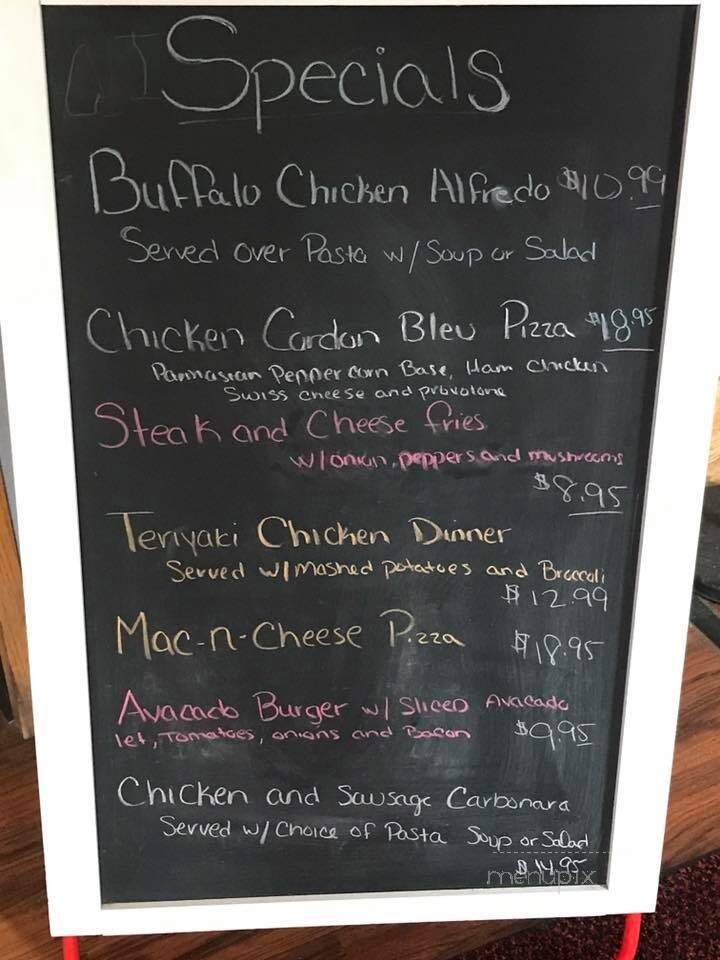 Specials
Buffalo Chicken Alfredo $10.99
Served over Pasta w/ Soup or Salad
Chicken Cordon Bleu Pizza $18.95
Parmasian Peppercorn Base, Ham Chicken
Swiss cheese and provolone
Steak and Cheese fries
w/onion, peppers and mushrooms
$8.95
Teriyaki Chicken Dinner
Served w/mashed potatoes and Broccoli
$12.99
Mac-n-Cheese Pizza $18.95
Avacado Burger w/ Sliced Avacado
let, Tomatoes, onions and Bacon $9.95
Chicken and Sausage Carbonara
Served w/ Choice of Pasta Soup or Salad
$14.95
menupix